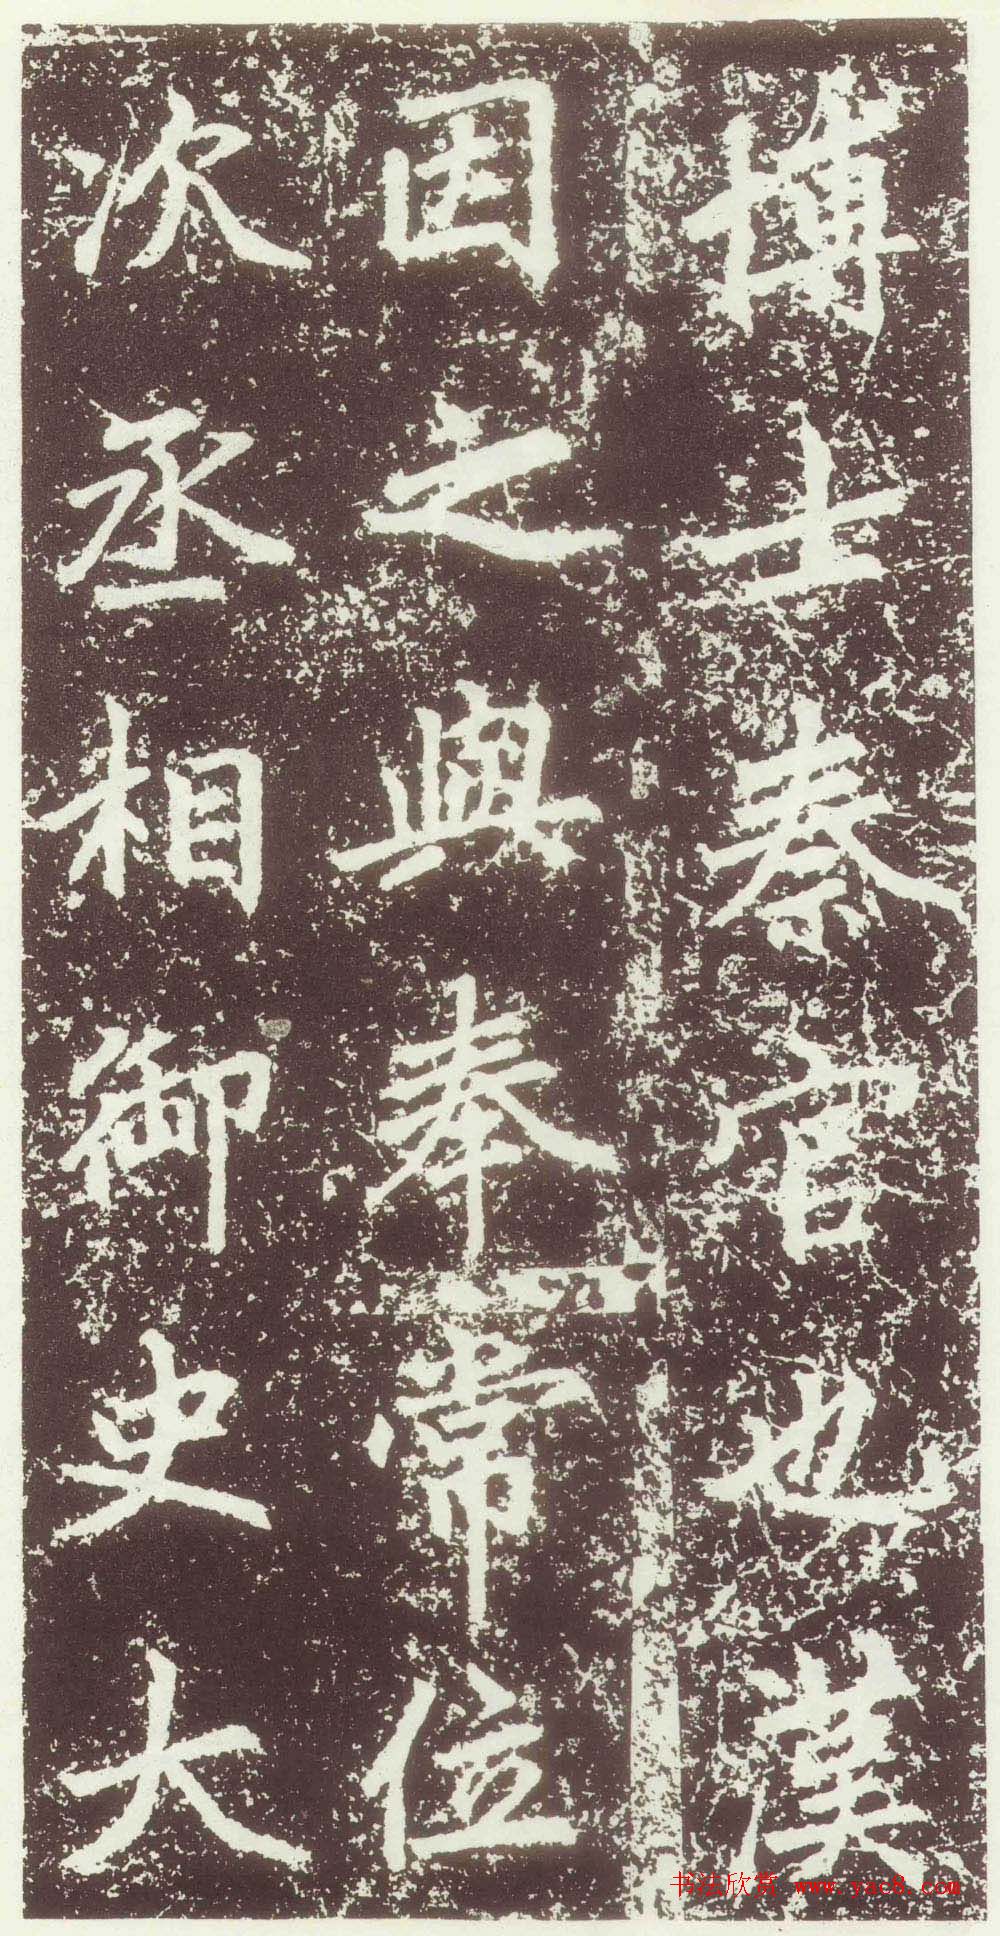 博士秦官也漢
因之與奉常位
次丞相御史大
书法欣赏 www.yac8.com